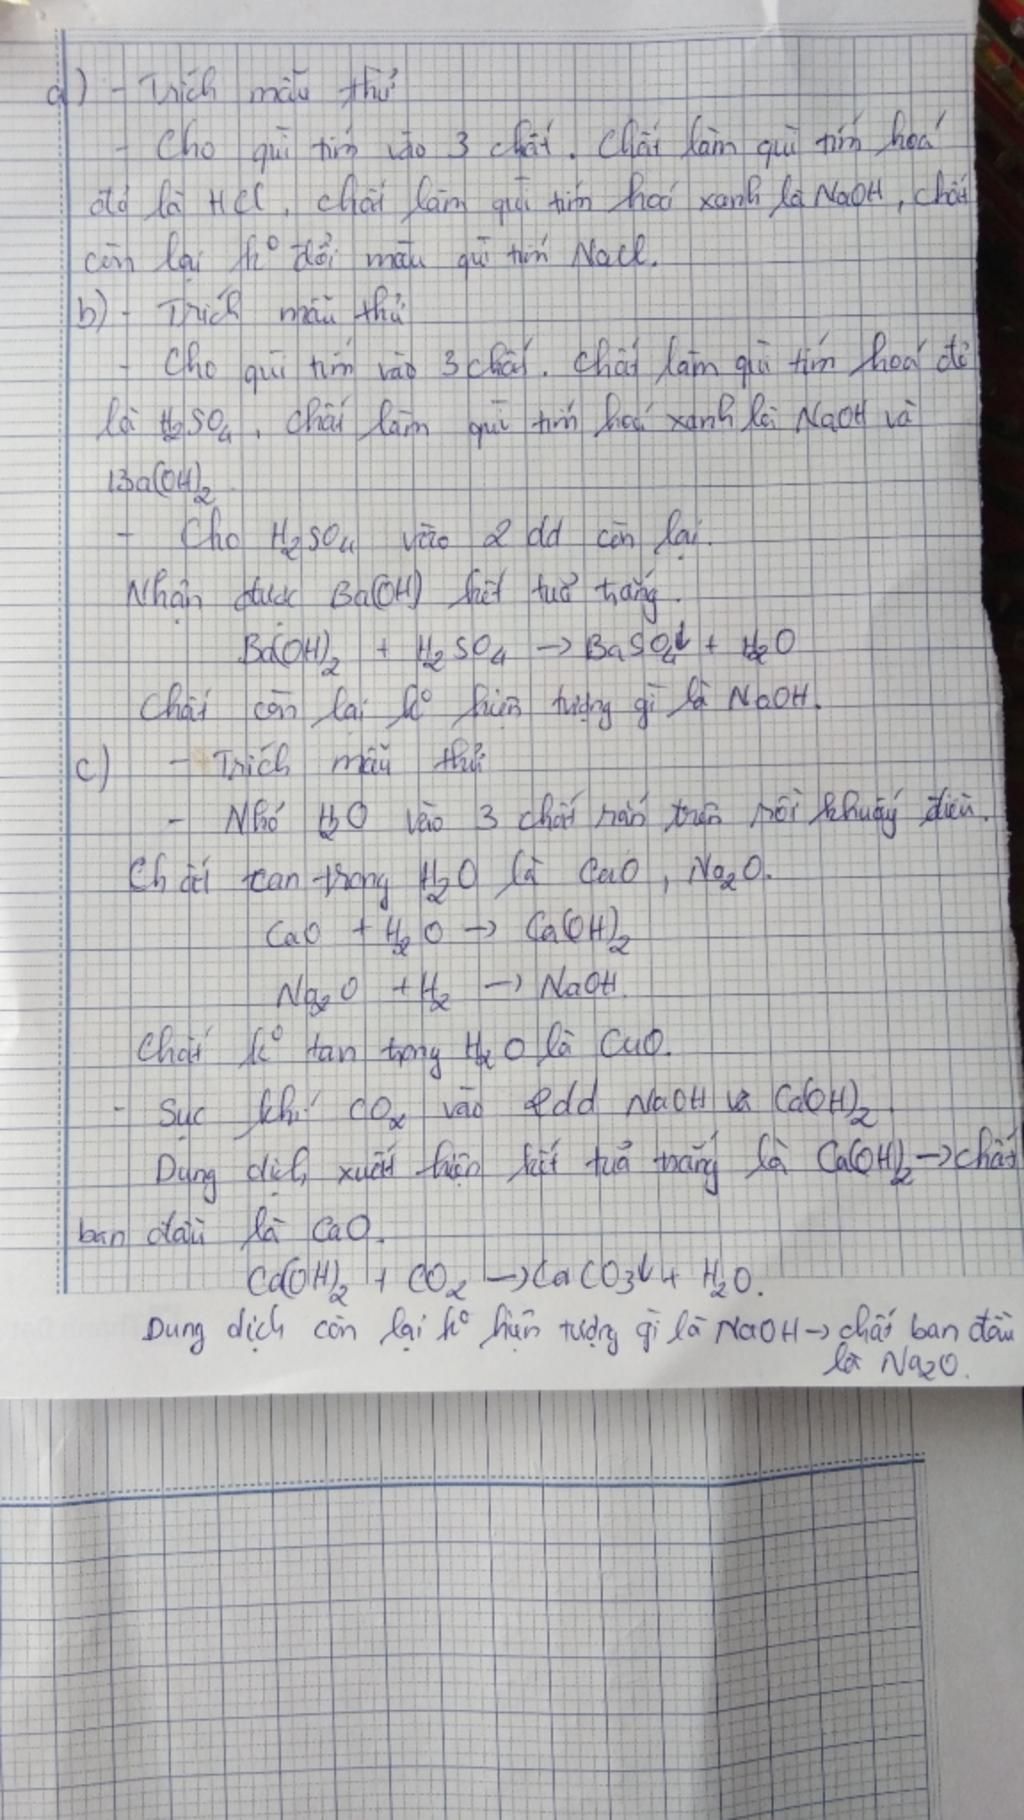 a) - Trích mẫu thử
- Cho quì tím vào 3 chất. Chất làm quì tím hoá
đỏ là HCl, chất làm quì tím hoá xanh là NaOH, chất
còn lại k° đổi màu quì tím NaCl.
b) - Trích mẫu thử
- Cho quì tím vào 3 chất. Chất làm quì tím hoá đỏ
là H₂SO₄, chất làm quì tím hoá xanh là NaOH và
Ba(OH)₂
- Cho H₂SO₄ vào 2 dd còn lại.
Nhận được Ba(OH) kết tuả trắng.
Ba(OH)₂ + H₂SO₄ → BaSO₄↓ + H₂O
Chất còn lại k° hiện tượng gì là NaOH.
c) - Trích mẫu thử
- Nhỏ H₂O vào 3 chất rắn trên rồi khuấy đều.
Chất tan trong H₂O là CaO, Na₂O.
CaO + H₂O → Ca(OH)₂
Na₂O + H₂ → NaOH
Chất k° tan trong H₂O là CuO.
- Sục khí CO₂ vào 2dd NaOH và Ca(OH)₂
Dung dịch xuất hiện kết tuả trắng là Ca(OH)₂ → chất
ban đầu là CaO.
Ca(OH)₂ + CO₂ → CaCO₃↓ + H₂O.
Dung dịch còn lại k° hiện tượng gì là NaOH → chất ban đầu
là Na₂O.